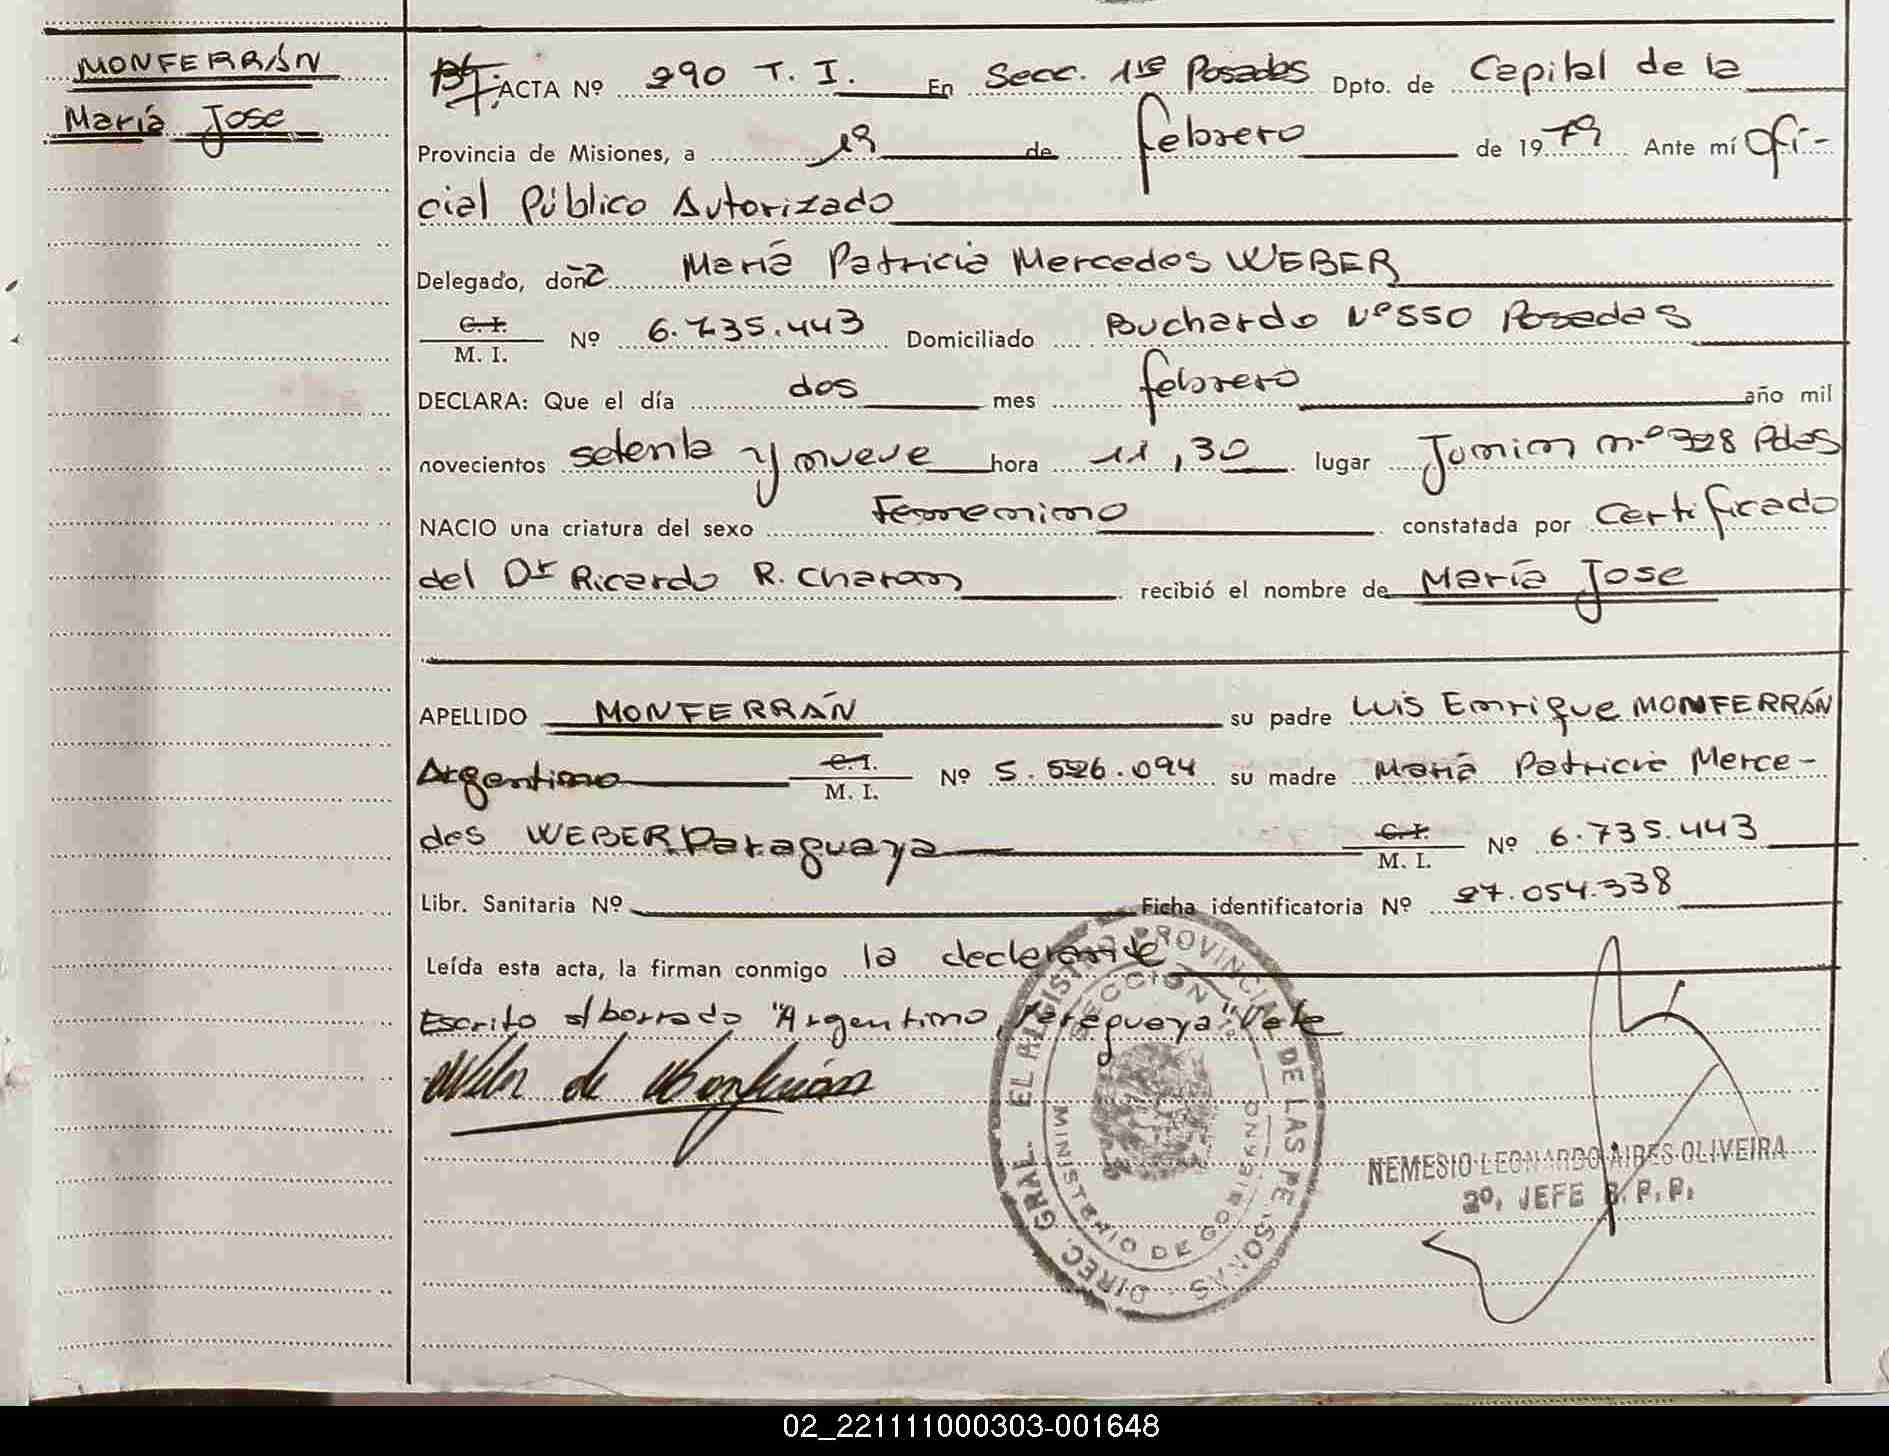 MONFERRÁN
María Jose
ACTA Nº 290 T. I. En Secc. 1ra Posadas Dpto. de Capital de la
Provincia de Misiones, a 19 de febrero de 1979 Ante mí Ofi-
cial Público Autorizado
Delegado, doña María Patricia Mercedes WEBER
C. I.
M. I. Nº 6.735.443 Domiciliado Buchardo Nº 550 Posadas
DECLARA: Que el día dos mes febrero año mil
novecientos setenta y nueve hora 11,30 lugar Junin nº 328 Pdas
NACIO una criatura del sexo Femenino constatada por Certificado
del Dr Ricardo R. recibió el nombre de María Jose
APELLIDO MONFERRÁN su padre Luis Enrique MONFERRÁN
Argentino C. I. M. I. Nº 5.526.094 su madre María Patricia Merce-
des WEBER Paraguaya C. I. M. I. Nº 6.735.443
Libr. Sanitaria Nº Ficha identificatoria Nº 27.054.338
Leída esta acta, la firman conmigo la declarante
Escrito s/borrado "Argentino, Paraguaya" Vale
Weber de Monferrán
DIREC. GRAL. EL REGISTRO PROVINCIAL DE LAS PERSONAS
SECCION 1º
MINISTERIO DE GOBIERNO
NEMESIO LEONARDO AIRES OLIVEIRA
2º. JEFE R. P. P.
02_221111000303-001648